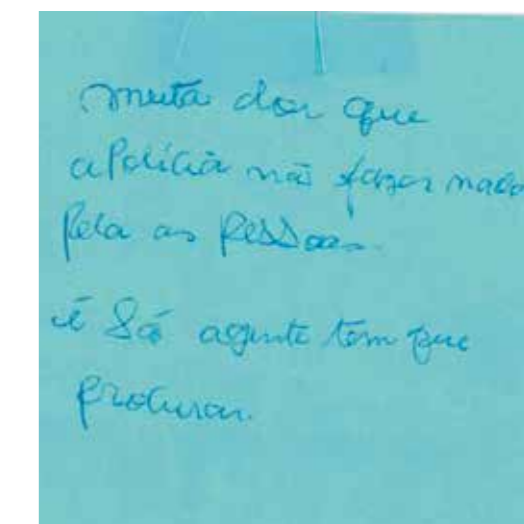 muita dor que
a Polícia não fazer nada
pela as pessoas.
é Só agente tem que
procurar.